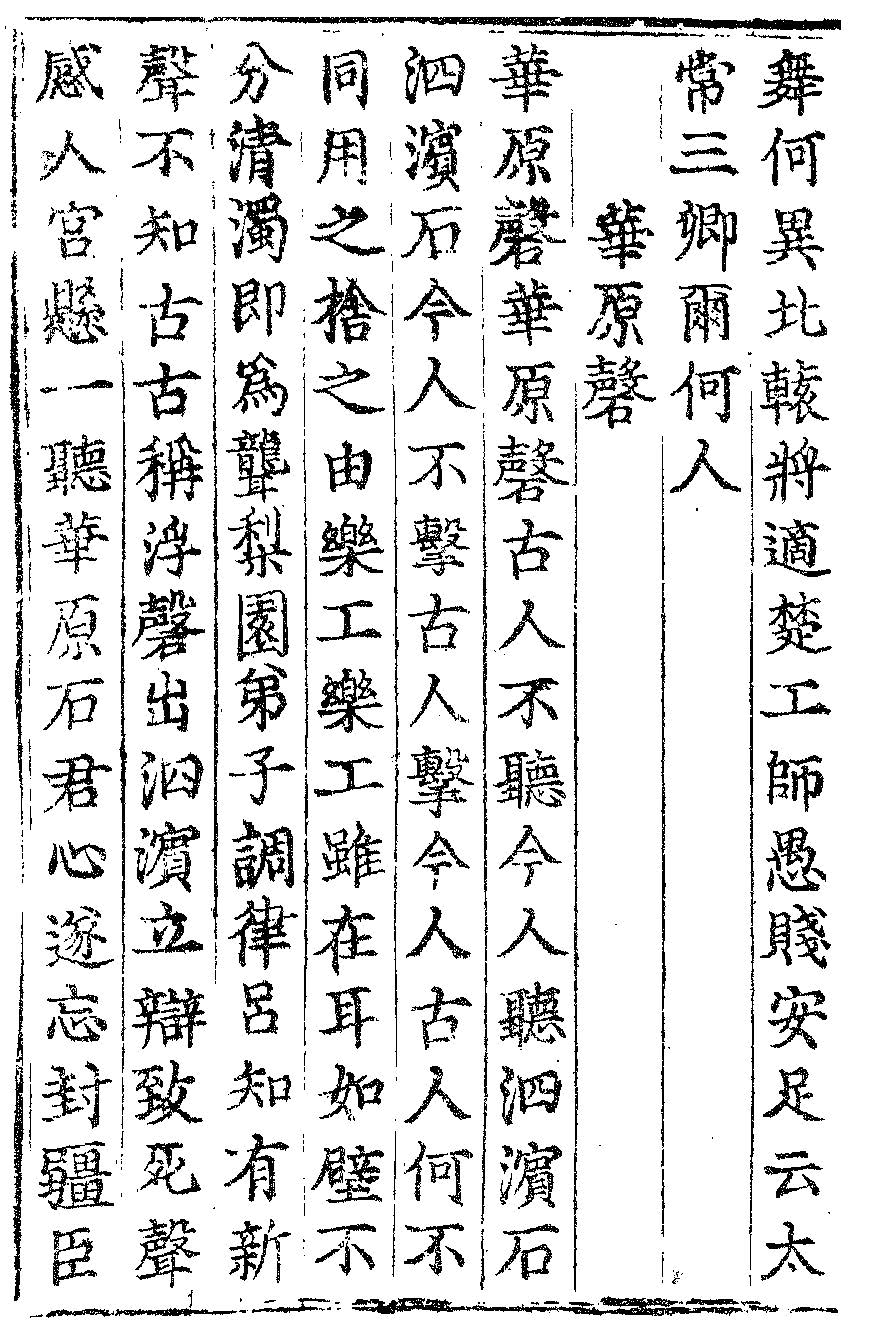 舞何異北轅將適楚工師愚賤安足云太
常三卿爾何人
華原磬
華原磬華原磬古人不聽今人聽泗濱石
泗濱石今人不擊古人擊今人古人何不
同用之捨之由樂工樂工雖在耳如壁不
分清濁即爲聾梨園弟子調律呂知有新
聲不知古古稱浮磬出泗濱立辯致死聲
感人宮懸一聽華原石君心遂忘封疆臣